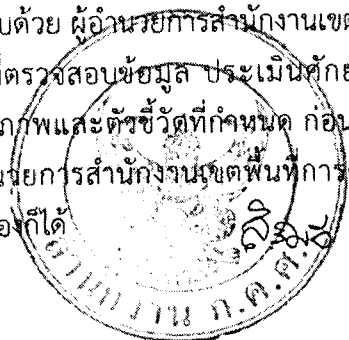 บด้วย ผู้อำนวยการสำนักงานเขต
ตรวจสอบข้อมูล ประเมินศักย
ภาพและตัวชี้วัดที่กำหนด ก่อน
นวยการสำนักงานเขตพื้นที่การ
องก็ได้
สำนักงาน ก.ค.ศ.